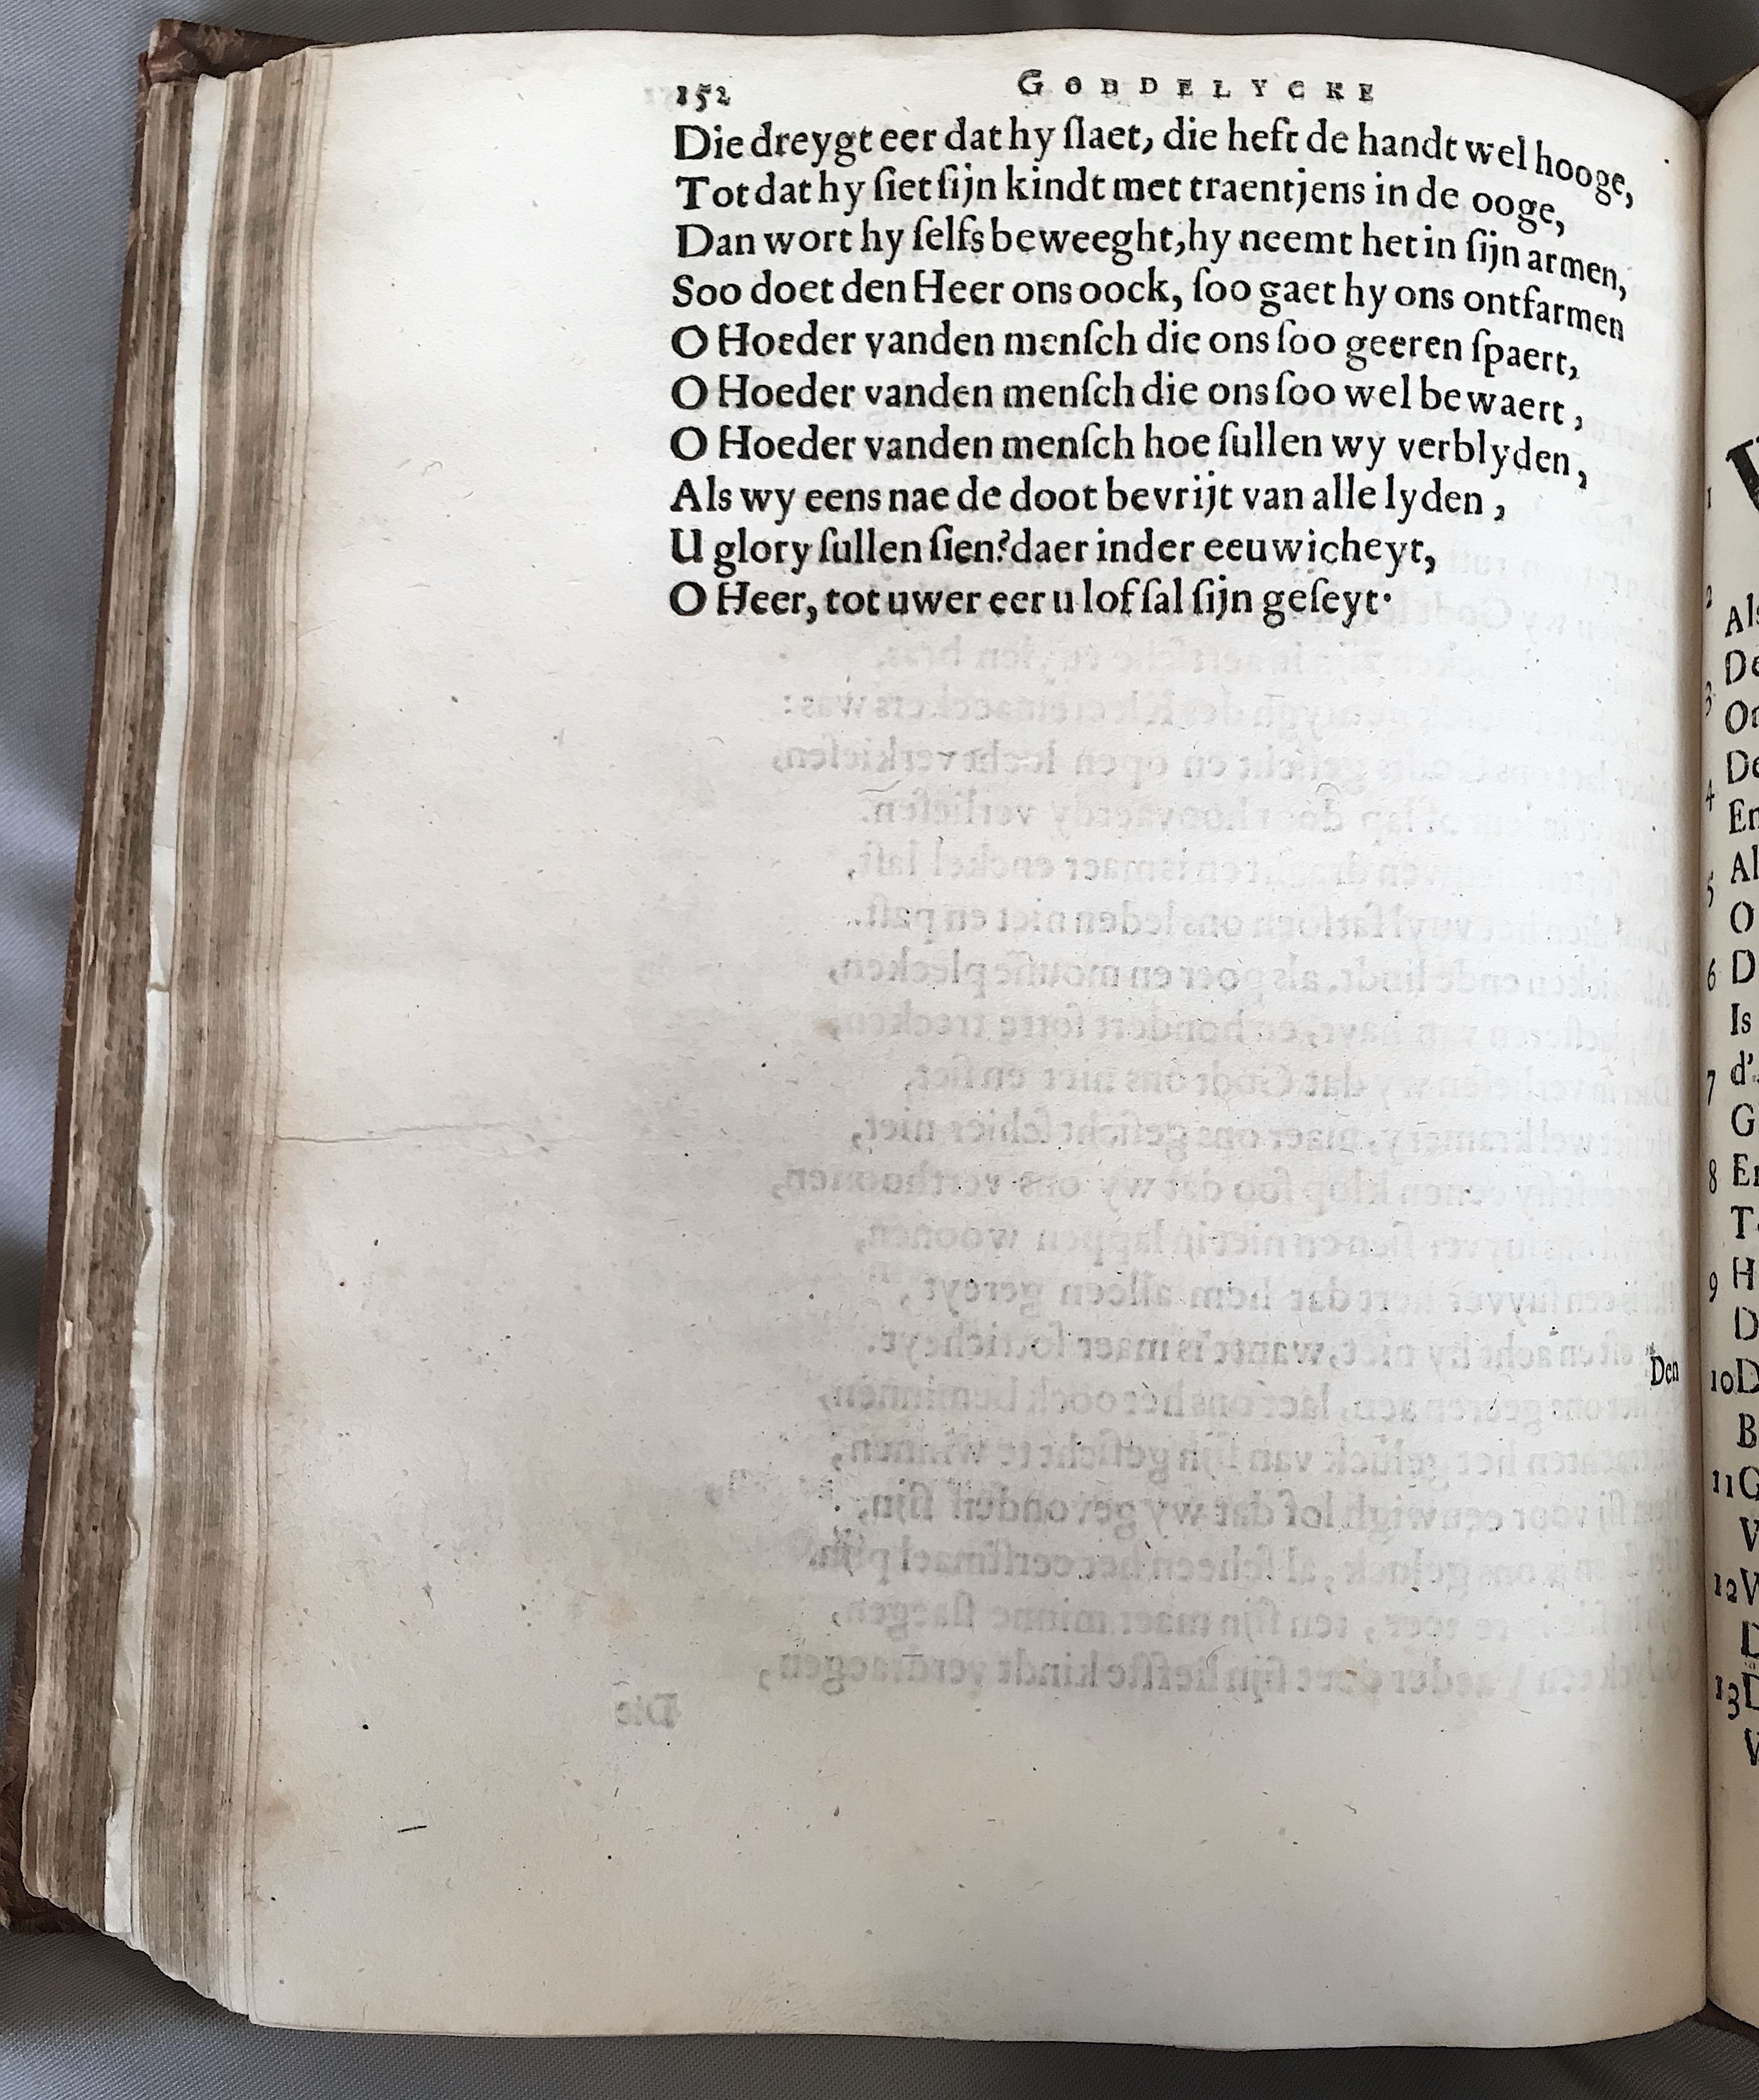 152 GODDELYCKE
Die dreygt eer dat hy ſlaet, die heft de handt wel hooge,
Tot dat hy ſiet ſijn kindt met traentjens in de ooge,
Dan wort hy ſelfs beweeght, hy neemt het in ſijn armen,
Soo doet den Heer ons oock, ſoo gaet hy ons ontfarmen
O Hoeder vanden menſch die ons ſoo geeren ſpaert,
O Hoeder vanden menſch die ons ſoo wel bewaert,
O Hoeder vanden menſch hoe ſullen wy verblyden,
Als wy eens nae de doot bevrijt van alle lyden,
U glory ſullen ſien? daer inder eeuwicheyt,
O Heer, tot uwer eer u lof ſal ſijn geſeyt.
Den
1
2
Als
3 De
4 De
Al
5
O
6 D
Is
7 d'
G
8 En
T
9 H
D
10 D
B
11 G
V
12 W
D
13 D
V